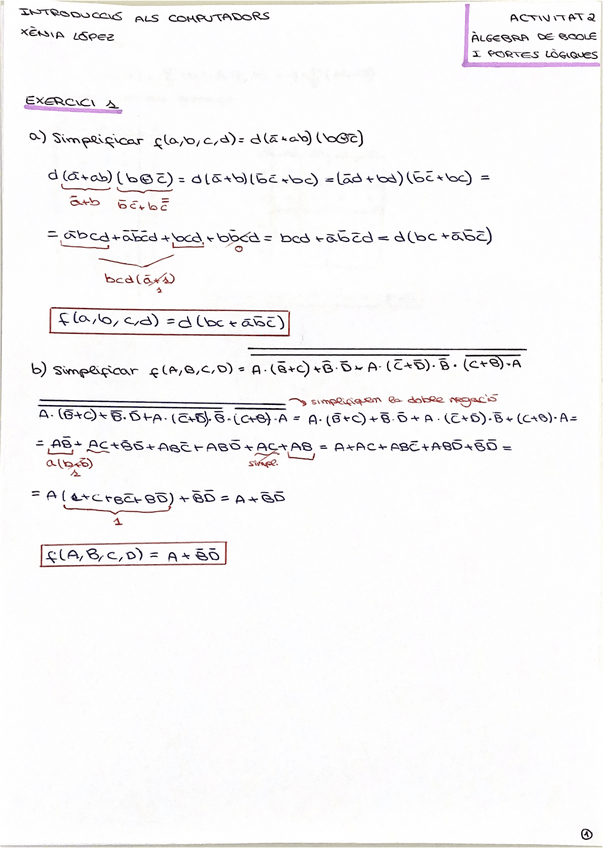 INTRODUCCIÓ ALS COMPUTADORS
XÈNIA LÓPEZ
ACTIVITAT 2
ÀLGEBRA DE BOOLE
I PORTES LÒGIQUES
EXERCICI 1
a) Simplificar f(a,b,c,d) = d(ā+ab)(b⊕c̄)
d(ā+ab)(b⊕c̄) = d(ā+b)(b̄c̄+bc) = (ād+bd)(b̄c̄+bc) =
ā+b b̄c̄+bc̿
= ābcd+āb̄c̄d+bcd+bb̄c̄d = bcd+āb̄c̄d = d(bc+āb̄c̄)
0
bcd(ā+1)
1
f(a,b,c,d) = d(bc+āb̄c̄)
b) Simplificar f(A,B,C,D) = A·(B̄+C)+B̄·D̄+A·(C̄+D̄)·B̄·(C+B)·A
simplifiquem la doble negació
A·(B̄+C)+B̄·D̄+A·(C̄+D̄)·B̄·(C+B)·A = A·(B̄+C)+B̄·D̄+A·(C̄+D̄)·B+(C+B)·A =
= AB̄+AC+B̄D̄+ABC̄+ABD̄+AC+AB = A+AC+ABC̄+ABD̄+B̄D̄ =
a(b+b̄) simpl.
1
= A(1+C+BC̄+BD̄)+B̄D̄ = A+B̄D̄
1
f(A,B,C,D) = A+B̄D̄
1